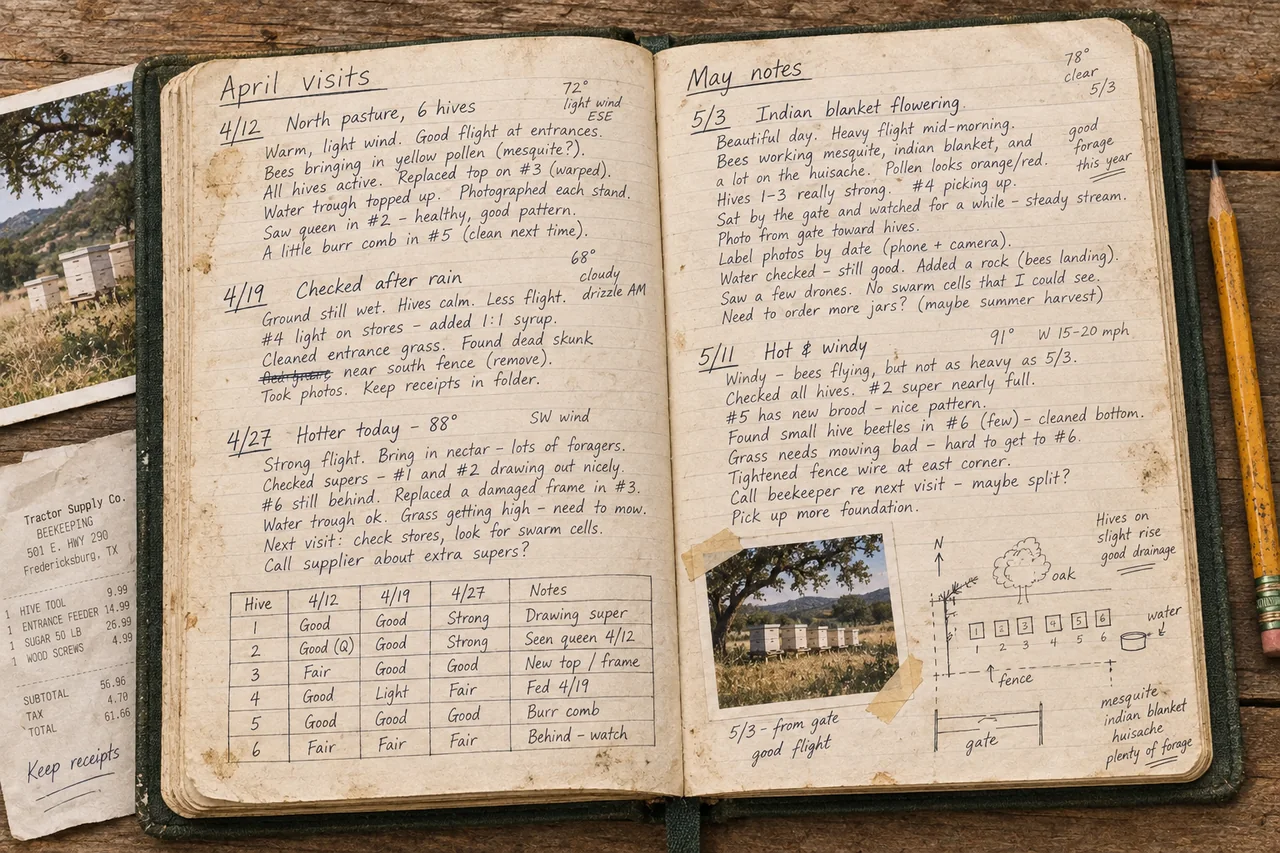 April visits
72°
light wind
ESE
4/12 North pasture, 6 hives
Warm, light wind. Good flight at entrances.
Bees bringing in yellow pollen (mesquite?).
All hives active. Replaced top on #3 (warped).
Water trough topped up. Photographed each stand.
Saw queen in #2 – healthy, good pattern.
A little burr comb in #5 (clean next time).
68°
cloudy
drizzle AM
4/19 Checked after rain
Ground still wet. Hives calm. Less flight.
#4 light on stores – added 1:1 syrup.
Cleaned entrance grass. Found dead skunk
near south fence (remove).
Took photos. Keep receipts in folder.
4/27 Hotter today – 88° SW wind
Strong flight. Bring in nectar – lots of foragers.
Checked supers – #1 and #2 drawing out nicely.
#6 still behind. Replaced a damaged frame in #3.
Water trough ok. Grass getting high – need to mow.
Next visit: check stores, look for swarm cells.
Call supplier about extra supers?
Hive 4/12 4/19 4/27 Notes
1 Good Good Strong Drawing super
2 Good (Q) Good Strong Seen queen 4/12
3 Fair Good Good New top / frame
4 Good Light Fair Fed 4/19
5 Good Good Good Burr comb
6 Fair Fair Fair Behind – watch
May notes
78°
clear
5/3
5/3 Indian blanket flowering
Beautiful day. Heavy flight mid-morning.
Bees working mesquite, indian blanket, and
a lot on the huisache. Pollen looks orange/red.
Hives 1–3 really strong. #4 picking up.
Sat by the gate and watched for a while – steady stream.
Photo from gate toward hives.
Label photos by date (phone + camera).
Water checked – still good. Added a rock (bees landing).
Saw a few drones. No swarm cells that I could see.
Need to order more jars? (maybe summer harvest)
good
forage
this year
5/11 Hot & windy 91° W 15–20 mph
Windy – bees flying, but not as heavy as 5/3.
Checked all hives. #2 super nearly full.
#5 has new brood – nice pattern.
Found small hive beetles in #6 (few) – cleaned bottom.
Grass needs mowing bad – hard to get to #6.
Tightened fence wire at east corner.
Call beekeeper re next visit – maybe split?
Pick up more foundation.
5/3 – from gate
good flight
N
oak
Hives on
slight rise
good drainage
1 2 3 4 5 6
1 2 3 4 5 6
water
fence
gate
mesquite
indian blanket
huisache
plenty of forage
Tractor Supply Co.
BEEKEEPING
501 E. HWY 290
Fredericksburg, TX
1 HIVE TOOL 9.99
1 ENTRANCE FEEDER 14.99
1 SUGAR 50 LB 26.99
1 WOOD SCREWS 4.99
SUBTOTAL 56.96
TAX 4.70
TOTAL 61.66
Keep receipts